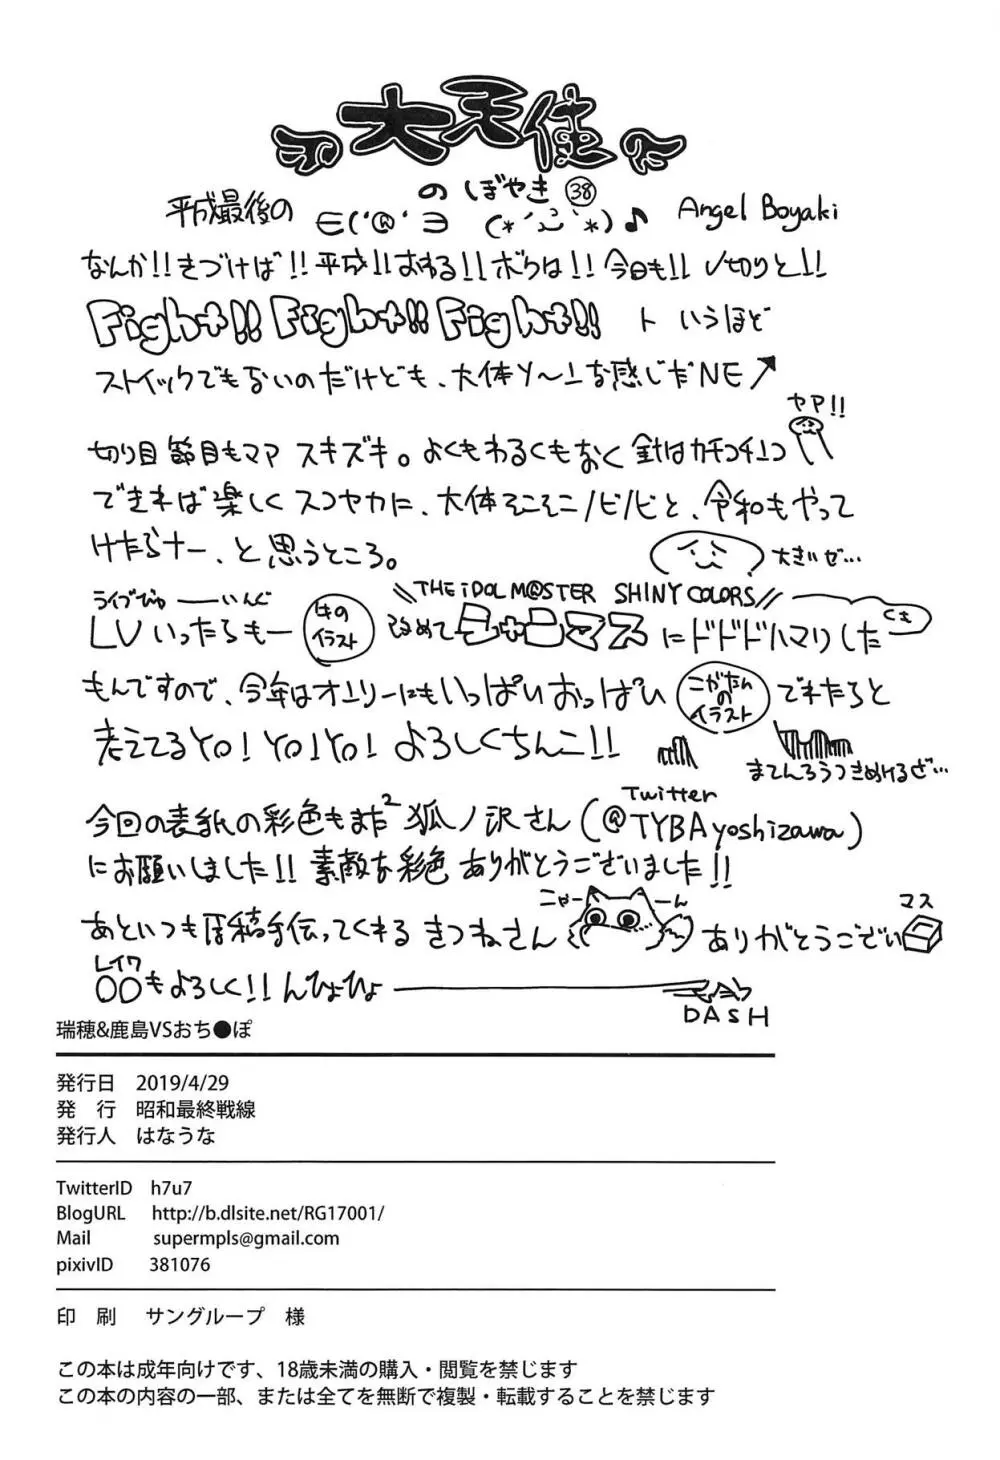 大天使
のぼやき38
平成最後の ∈('@'∋ (*´ω`*)♪ Angel Boyaki
なんか!!きづけば!!平成!!おわる!!ボクは!!今日も!!〆切りと!!
Fight!! Fight!! Fight!! ト いうほど
ストイックでもないのだけども、大体ソ〜ユな感じだNE↗
ヤア!!
切り目節目もマア スキズキ。よくもわるくもなく 針はカチコチユコ
できれば楽しくスコヤカに、大体そこそこノビノビと、令和もやって
けたらナー、と思うところ。
大きいぜ…
\\THE iDOLM@STER SHINY COLORS//
ライブびゅーいんぐ
LVいったらもー 牛のイラスト 改めてシャニマスにドドドハマりした
くも
もんですので、今年はオンリーにもいっぱいおっぱい こがたんのイラスト でれたらと
考えてるYO!YO!YO! よろしくちんこ!!
まてんろうつきぬけるぜ…
Twitter
今回の表紙の彩色もまた2狐ノ沢さん(@TYBAyoshizawa)
にお願いしました!! 素敵な彩色 ありがとうございました!!
こゃーーん
マス
あといつも原稿手伝ってくれる きつねさん ありがとうござい
レイワ
○○もよろしく!! んひょひょ
DASH
瑞穂&鹿島VSおち●ぽ
発行日 2019/4/29
発 行 昭和最終戦線
発行人 はなうな
TwitterID h7u7
BlogURL http://b.dlsite.net/RG17001/
Mail supermpls@gmail.com
pixivID 381076
印 刷 サングループ 様
この本は成年向けです、18歳未満の購入・閲覧を禁じます
この本の内容の一部、または全てを無断で複製・転載することを禁じます